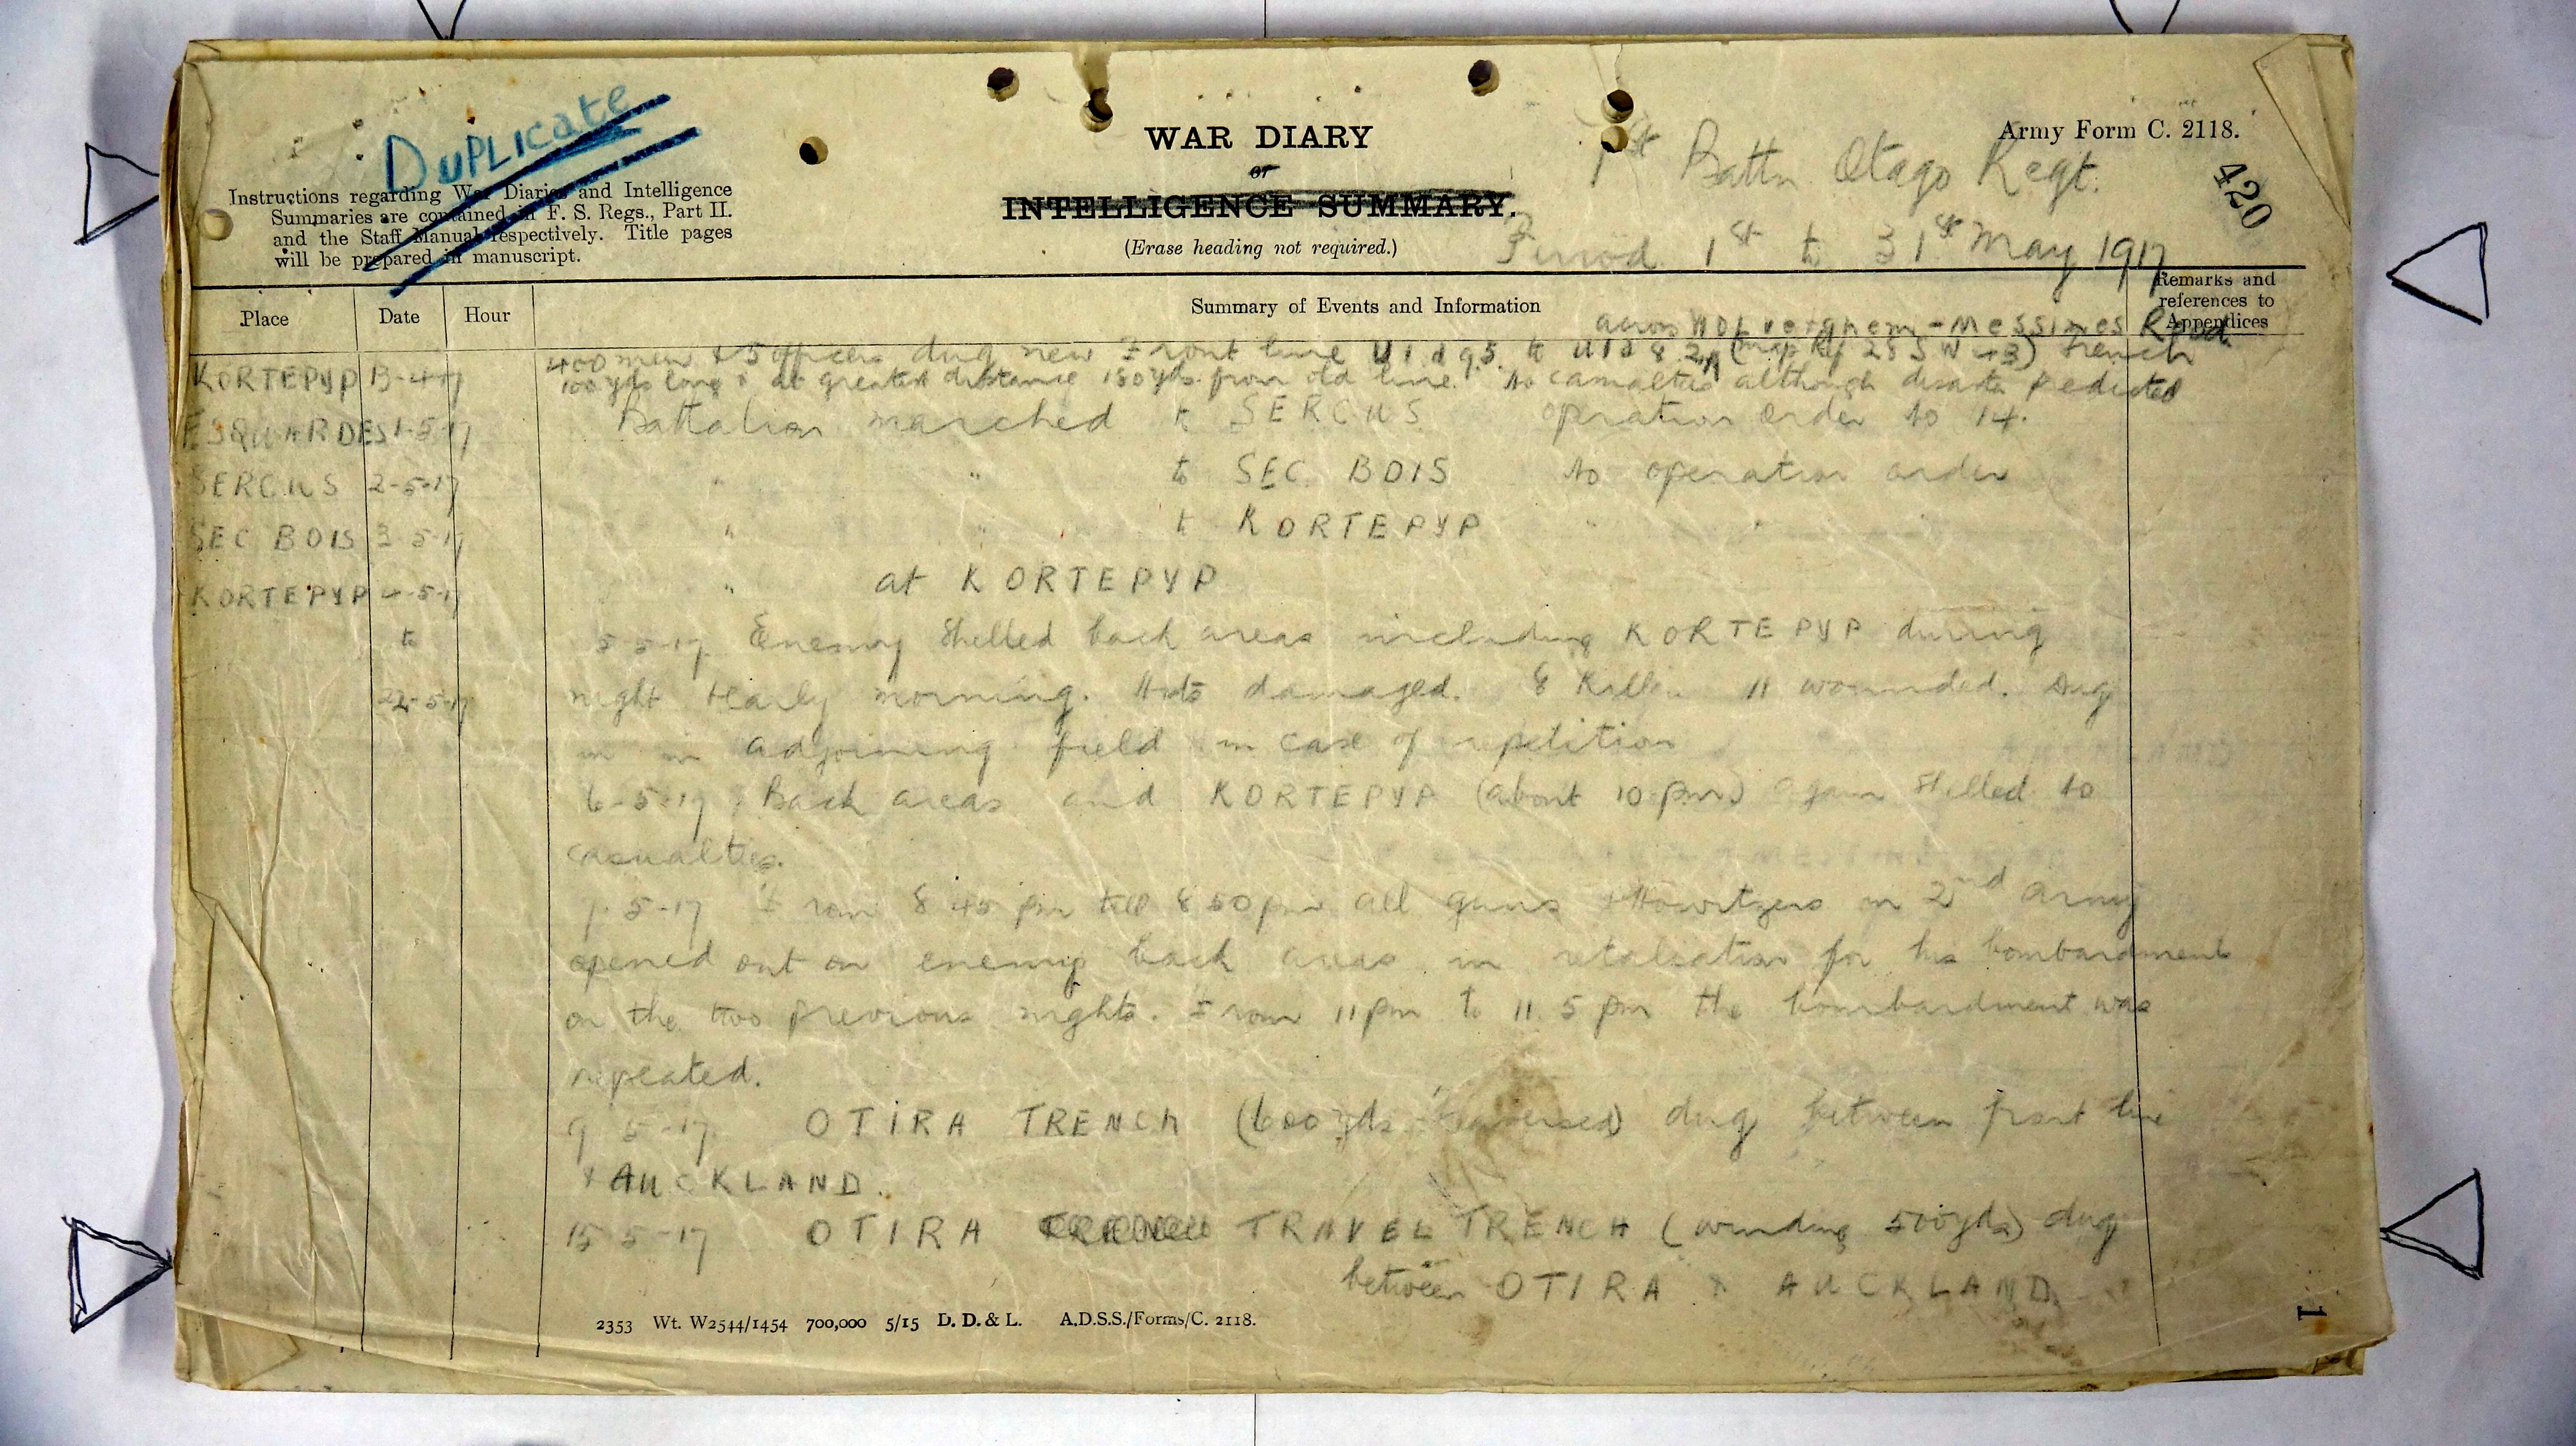 DUPLICATE
WAR DIARY
or
INTELLIGENCE SUMMARY.
(Erase heading not required.)
Army Form C. 2118.
1st Battn Otago Regt.
Period 1st to 31st May 1917
420
Instructions regarding War Diaries and Intelligence
Summaries are contained in F. S. Regs., Part II.
and the Staff Manual respectively. Title pages
will be prepared in manuscript.
Place Date Hour Summary of Events and Information Remarks and
references to
Appendices
across Wolverghem - Messines Road
KORTEPYP 13-4-17 400 men & 5 officers dug new Front line U1d 9.5. to U1d 8.2 (map Ref 28 SW) trench
100 yds long & at greatest distance 150 yds from old line. No casualties although disaster predicted
ESQUARDES 1-5-17 Battalion marched to SERCUS operation order No 14.
SERCUS 2-5-17 " " to SEC BOIS No operation order
SEC BOIS 3-5-17 " " to KORTEPYP " " "
KORTEPYP 4-5-17 " at KORTEPYP
to 5-5-17 Enemy Shelled back areas including KORTEPYP during
22-5-17 night & early morning. Huts damaged. 8 Killed 11 wounded. Dug
in in adjoining field in case of repetition
6-5-17 Back areas and KORTEPYP (about 10 pm) again Shelled No
casualties.
7-5-17 From 8 45 pm till 8 50 pm all guns & Howitzers in 2nd Army
opened out on enemy back areas in retaliation for his bombardment
on the two previous nights. From 11 pm to 11.5 pm the bombardment was
repeated.
9 5-17 OTIRA TRENCH (600 yds traversed) dug between front line
& AUCKLAND.
15 5-17 OTIRA TRAVEL TRENCH (winding 500 yds) dug
between OTIRA & AUCKLAND.
2353 Wt. W2544/1454 700,000 5/15 D. D. & L. A.D.S.S./Forms/C. 2118.
1